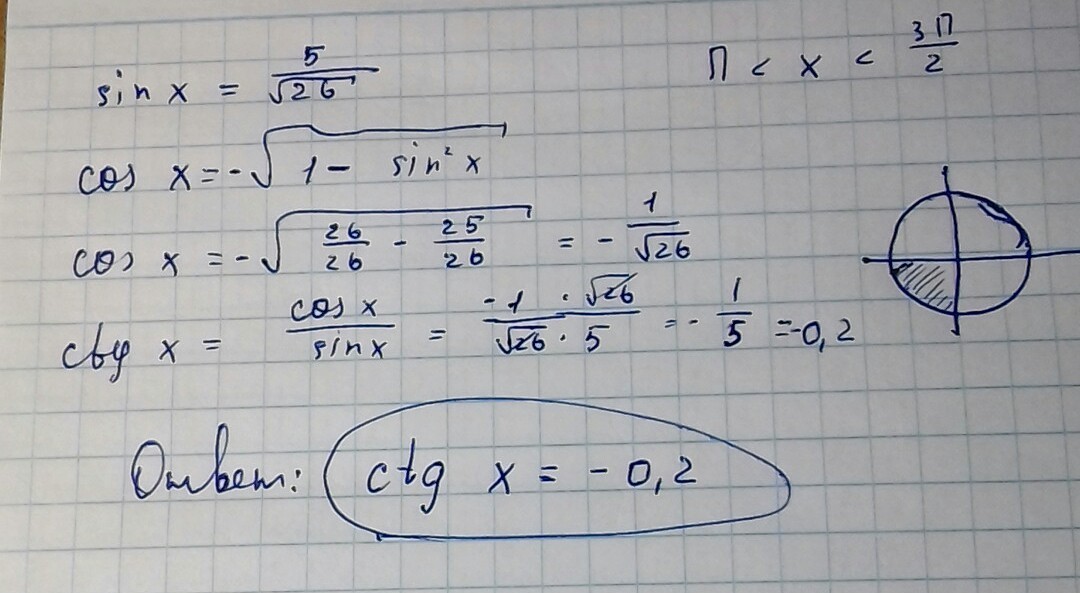 sin x = 5/√26    П < x < 3П/2
cos x = -√(1 - sin² x)
cos x = -√(26/26 - 25/26) = - 1/√26
ctg x = cos x/sin x = -1 · √26/√26 · 5 = - 1/5 = -0,2
Ответ: ctg x = - 0,2